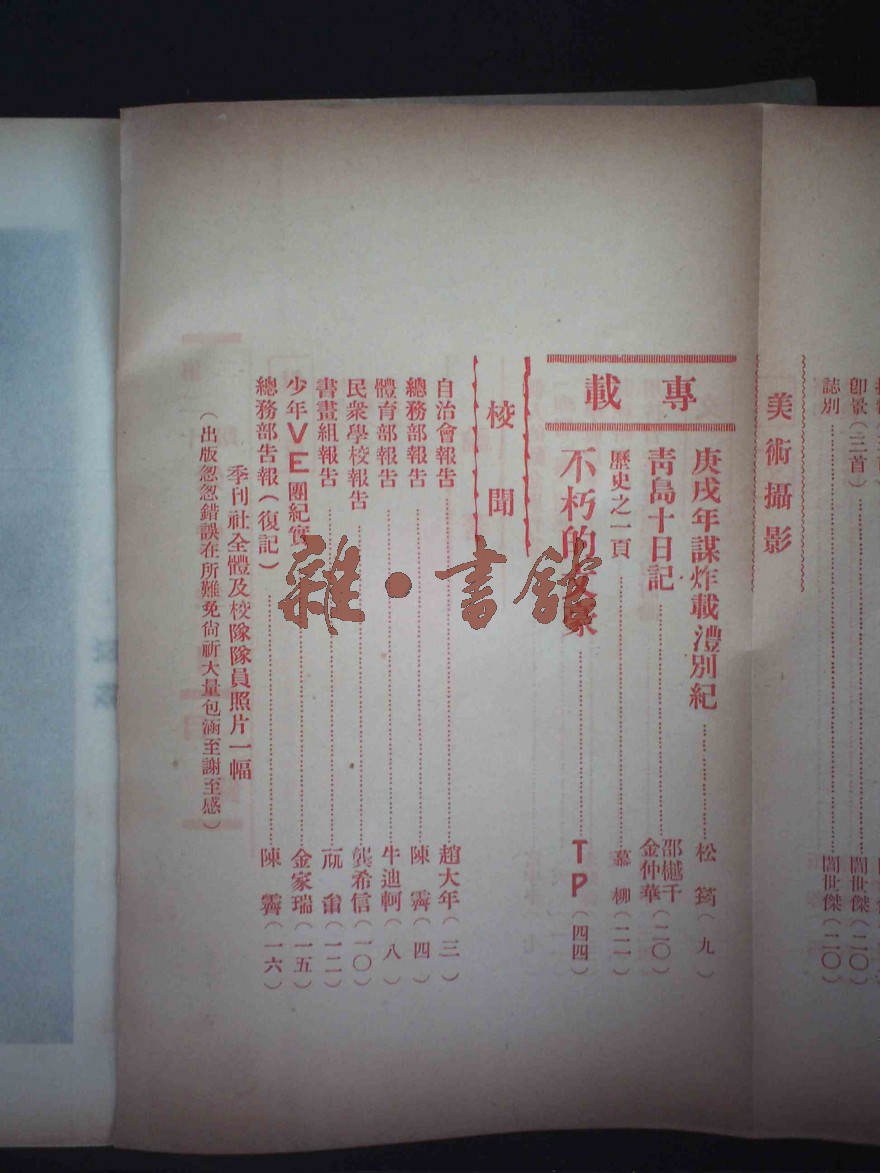 即景(三首)……閻世傑(二〇)
誌別……閻世傑(二〇)
美術攝影
專載
庚戌年謀炸載灃別紀……松筠(九)
靑島十日記……邵樾千 金仲華(二〇)
歷史之一頁……慕柳(二一)
不朽的……TP(四四)
校聞
自治會報告……趙大年(三)
總務部報告……陳霽(四)
體育部報告……牛迪軻(八)
民衆學校報告……龔希信(一〇)
書畫組報告……(一二)
少年VE團紀實……金家瑞(一五)
總務部告報(復記)……陳霽(一六)
季刊社全體及校隊隊員照片一幅
(出版怱怱錯誤在所難免尙祈大量包涵至謝至感)
雜·書館